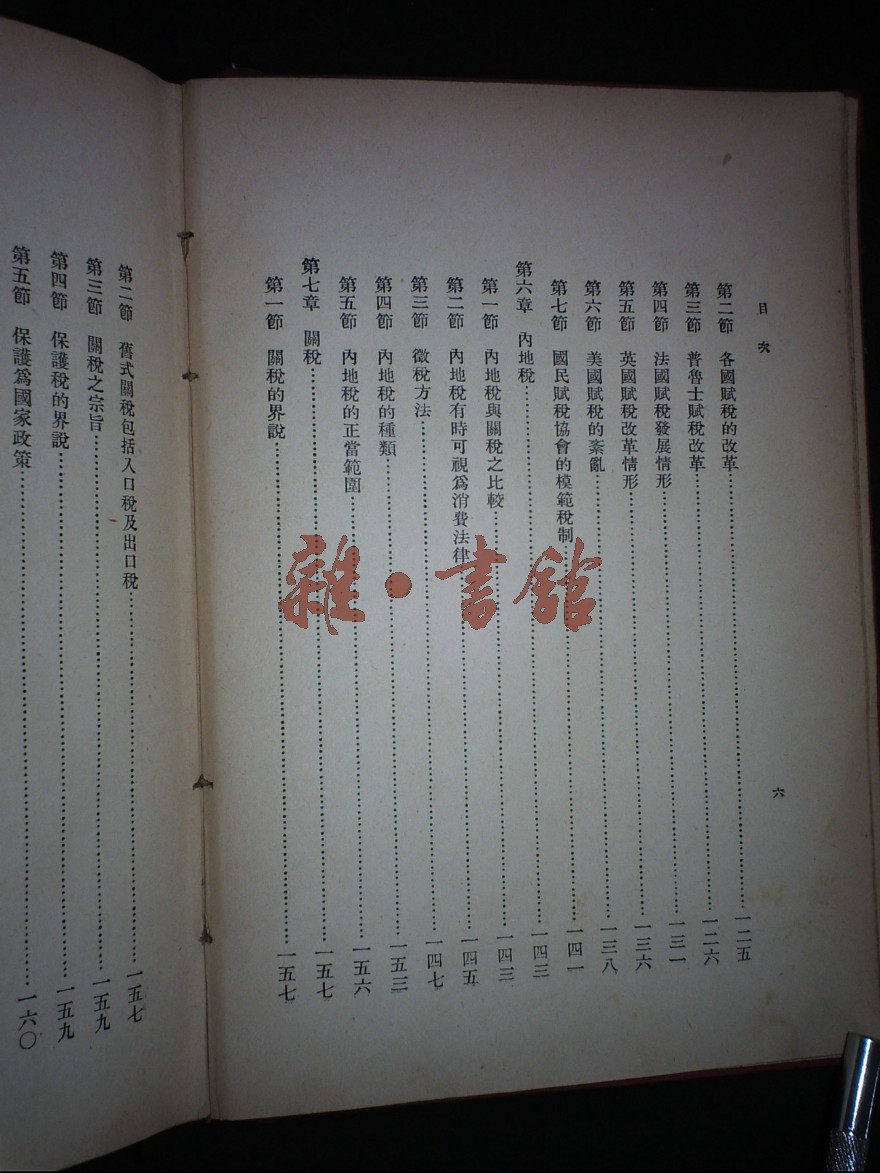 目次
六
第二節 各國賦稅的改革……一二五
第三節 普魯士賦稅改革……一二六
第四節 法國賦稅發展情形……一三一
第五節 英國賦稅改革情形……一三六
第六節 美國賦稅的紊亂……一三八
第七節 國民賦稅協會的模範稅制……一四一
第六章 內地稅……一四三
第一節 內地稅與關稅之比較……一四三
第二節 內地稅有時可視爲消費法律……一四五
第三節 徵稅方法……一四七
第四節 內地稅的種類……一五三
第五節 內地稅的正當範圍……一五六
第七章 關稅……一五七
第一節 關稅的界說……一五七
第二節 舊式關稅包括入口稅及出口稅……一五七
第三節 關稅之宗旨……一五九
第四節 保護稅的界說……一五九
第五節 保護爲國家政策……一六〇
雜·書館